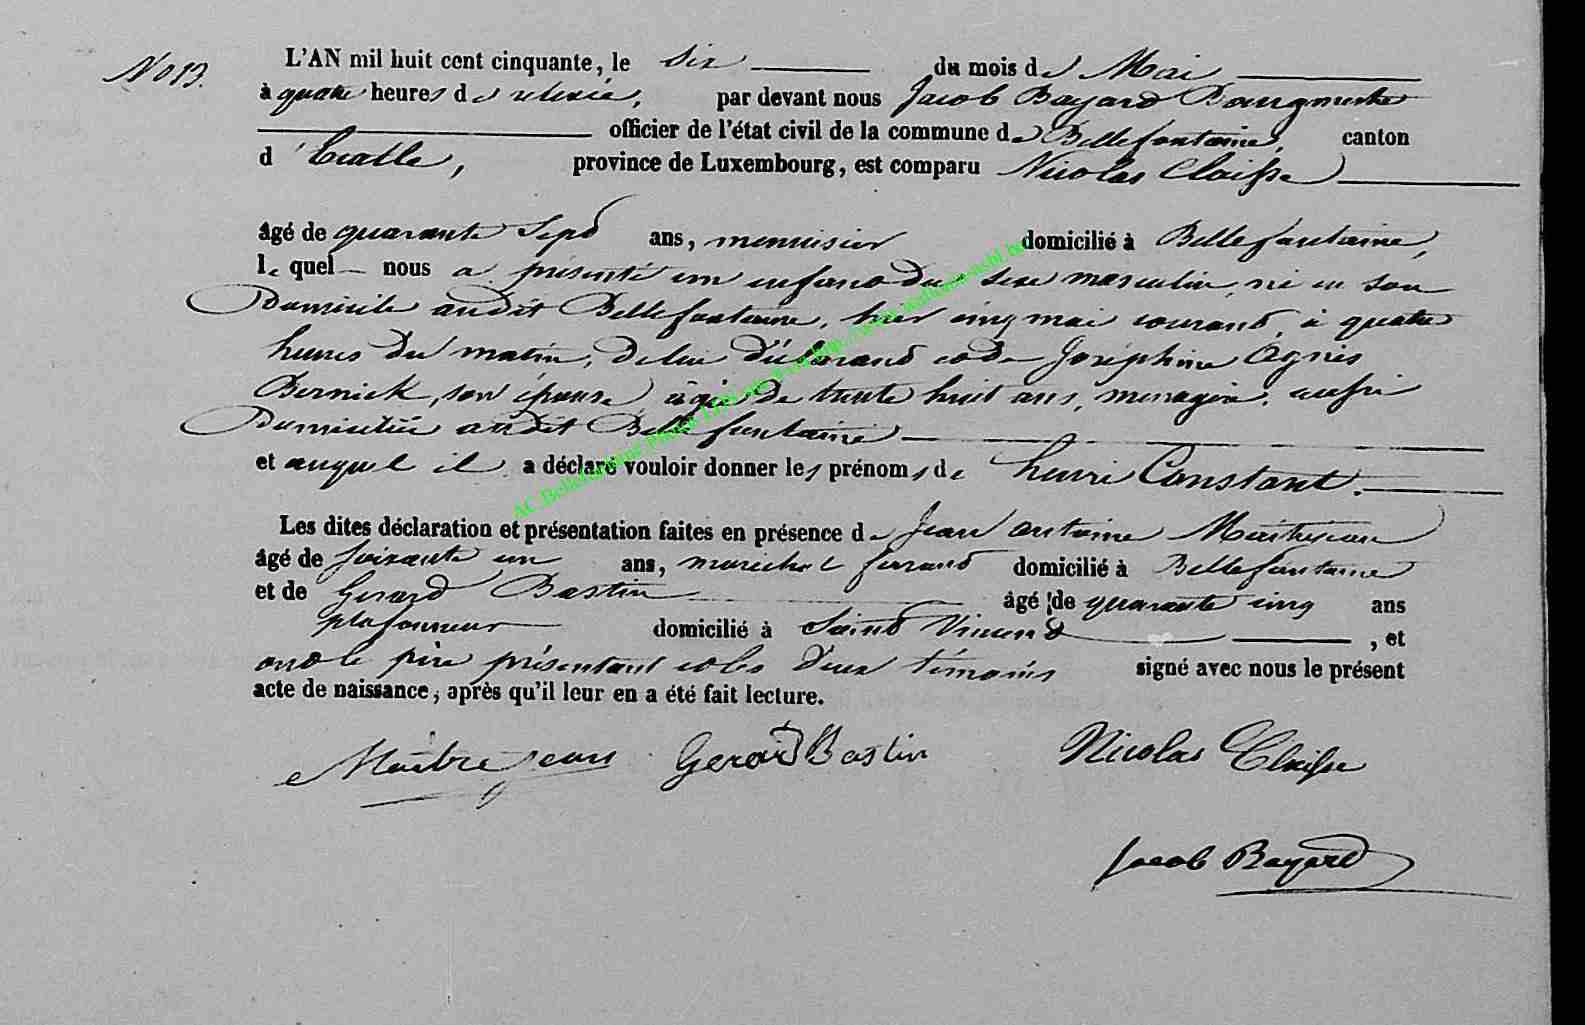 N° 13.
L'AN mil huit cent cinquante, le six du mois de Mai
à quatre heures de relevée, par devant nous Jacob Bayard Bourgmestre
officier de l'état civil de la commune de Bellefontaine, canton
d'Etalle, province de Luxembourg, est comparu Nicolas Claisse
âgé de quarante sept ans, menuisier domicilié à Bellefontaine,
lequel nous a présenté un enfant du sexe masculin né en son
Domicile audit Bellefontaine, hier cinq mai courant, à quatre
heures du matin, de lui déclarant et de Joséphine Agnès
Bernick, son épouse âgée de trente huit ans, ménagère, aussi
Domiciliée audit Bellefontaine
et auquel il a déclaré vouloir donner les prénoms de henri Constant.
Les dites déclaration et présentation faites en présence de Jean antoine
âgé de soixante un ans, maréchal ferrant domicilié à Bellefontaine
et de Gerard Bastin âgé de quarante cinq ans
plafonneur domicilié à Saint Vincent, et
ont le père présentant et les deux témoins signé avec nous le présent
acte de naissance, après qu'il leur en a été fait lecture.
Maitrejean Gerard Bastin Nicolas Claisse
Jacob Bayard
AC Bellefontaine